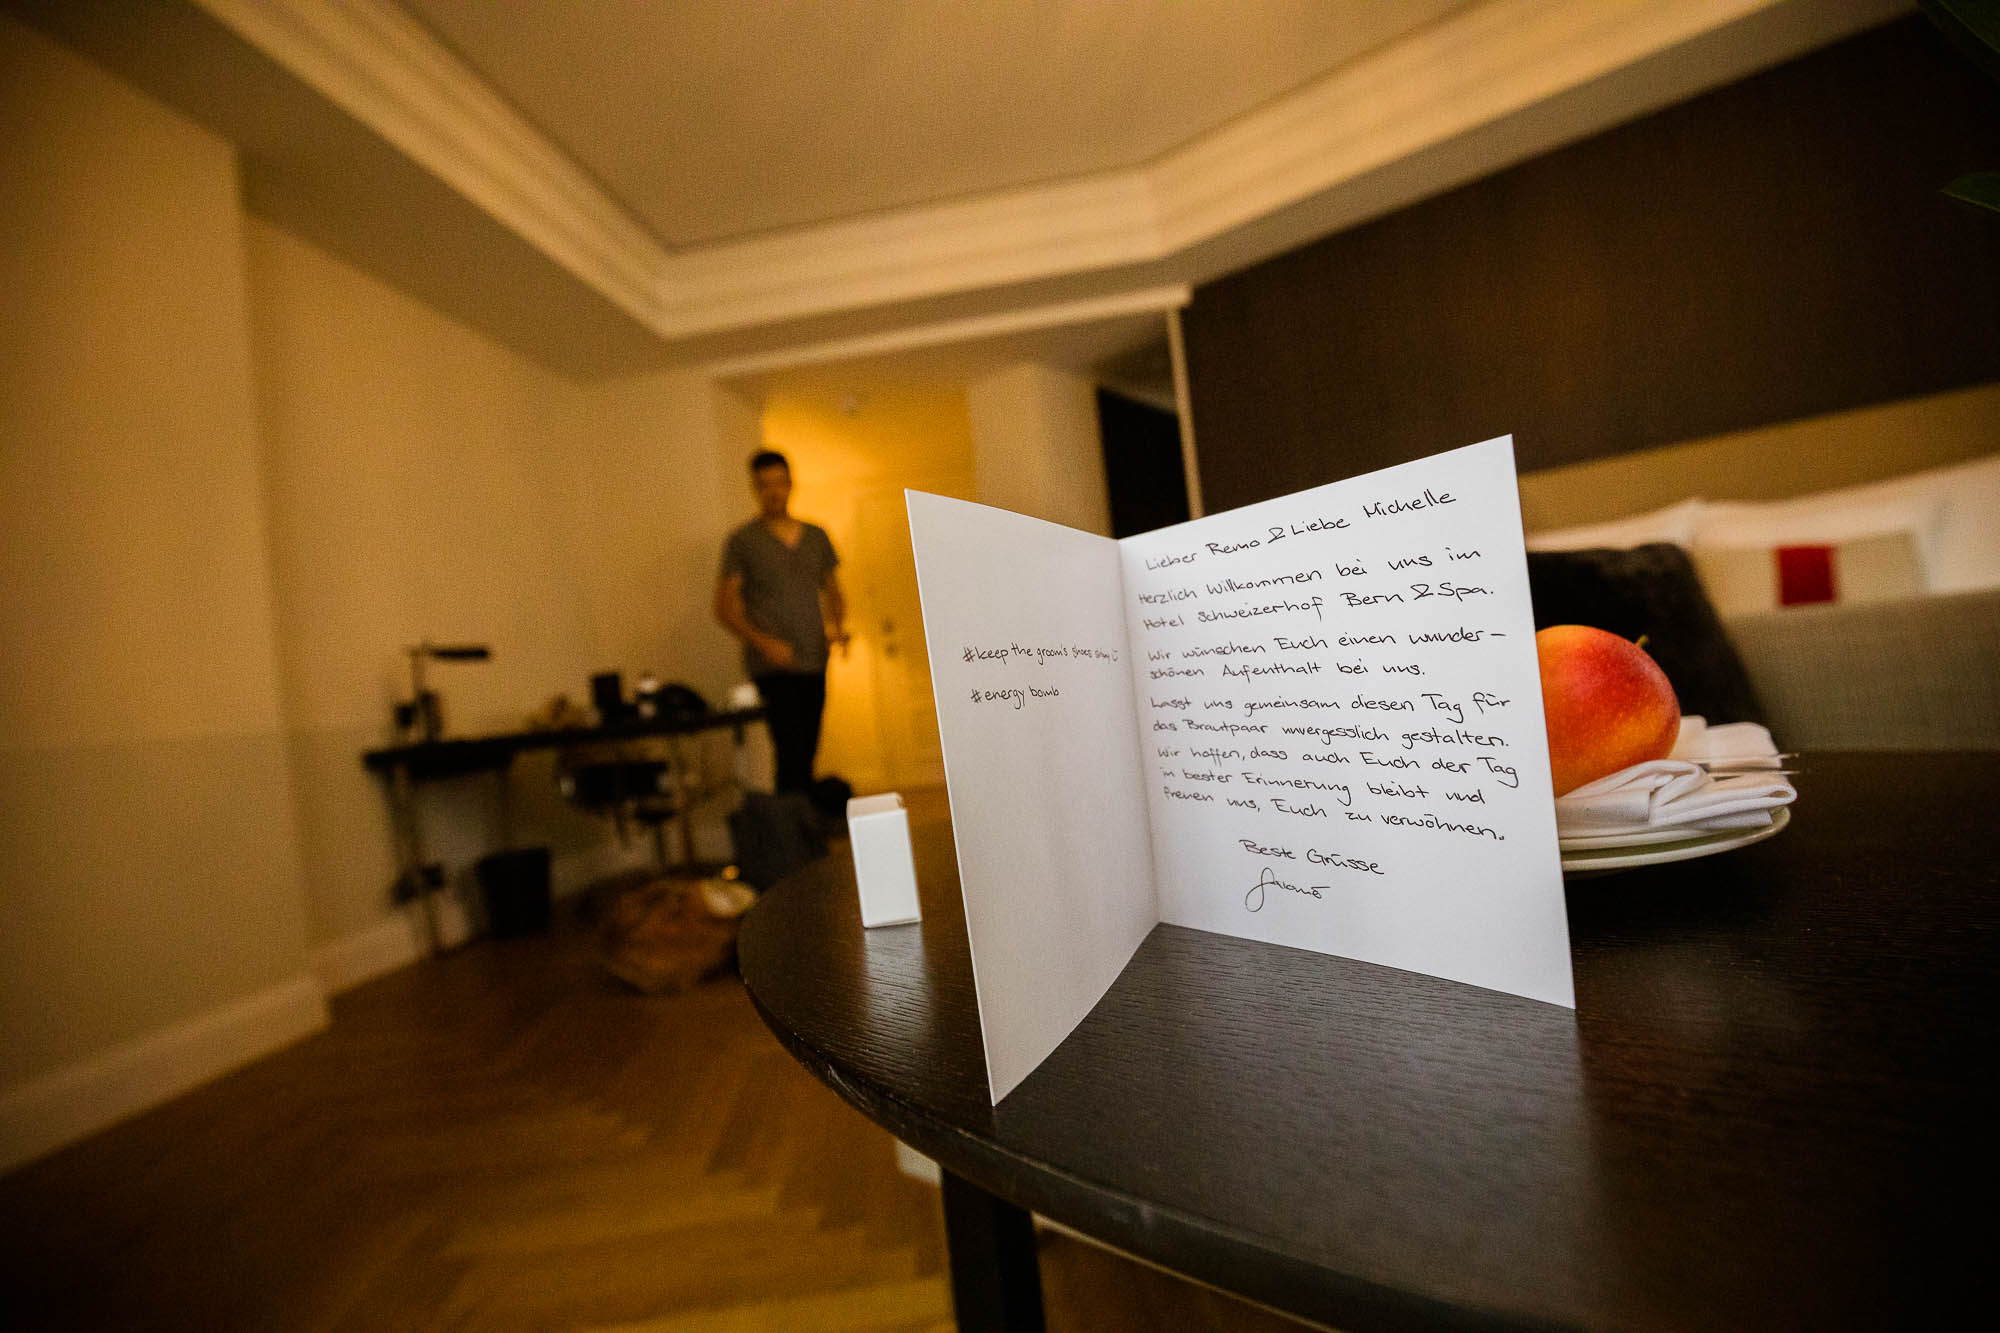 #keep the groom's shoes shiny
#energy bomb
Lieber Remo & Liebe Michelle
Herzlich Willkommen bei uns im
Hotel Schweizerhof Bern & Spa.
Wir wünschen Euch einen wunder-
schönen Aufenthalt bei uns.
Lasst uns gemeinsam diesen Tag für
das Brautpaar unvergesslich gestalten.
Wir hoffen, dass auch Euch der Tag
in bester Erinnerung bleibt und
freuen uns, Euch zu verwöhnen.
Beste Grüsse